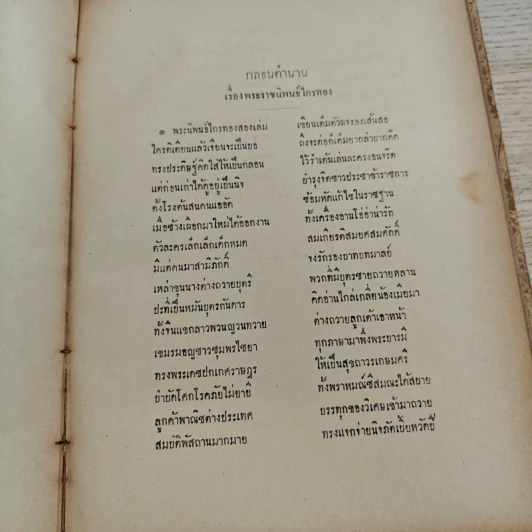 กลอนตำนาน
เรื่องพระราชนิพนธ์ไกรทอง
๏ พระนิพนธ์ไกรทองสองเล่ม เขียนเต็มตัวผจงลงเส้นสอ
ใครติเตียนแล้วเจียนจะเป็นยอ ถึงจะต่อก็เต็มยากลำบากคิด
ทรงประดิษฐ์คิดใส่ให้เป็นกลอน ไว้รำเต้นเล่นละครงอนจริต
แต่ก่อนเก่าได้ดูอยู่เป็นนิจ บำรุงจิตชาวประชาข้าราชการ
ทั้งโรงต้นสนคนแออัด ซ้อมหัดแก้ไขในราชฐาน
เมื่อช้างเผือกมาใหม่ได้ออกงาน ทั้งเครื่องอานโอ่อ่าน่ารัก
ตัวละครเล็กเล็กเด็กหมด สมเกียรติสมยศสมศักดิ์
มีแต่คนมาสามิภักดิ์ จงรักรองบาทยทมาลย์
เหล่าขุนนางต่างถวายบุตรี พวกที่มีบุตรชายถวายหลาน
ปะที่เป็นหมันบุตรกันดาร คิดอ่านไกล่เกลี่ยน้องเมียมา
ทั้งจีนแขกลาวพวนญวนทวาย ต่างถวายลูกเต้าเอาหน้า
เขมรมอญชาวชุมพรไชยา ทุกภาษามาพึ่งพระบารมี
ทรงพระเดชปกเกศราษฎร ให้เป็นสุขถาวรเกษมศรี
บำบัดโศกโรคภัยไม่ยายี ทั้งพราหมณ์ชีสมณะได้สบาย
ลูกค้าพาณิชต่างประเทศ บรรทุกของวิเศษเข้ามาถวาย
สมบัติพัสถานมากมาย ทรงแจกจ่ายนิจภัตเบี้ยหวัดปี